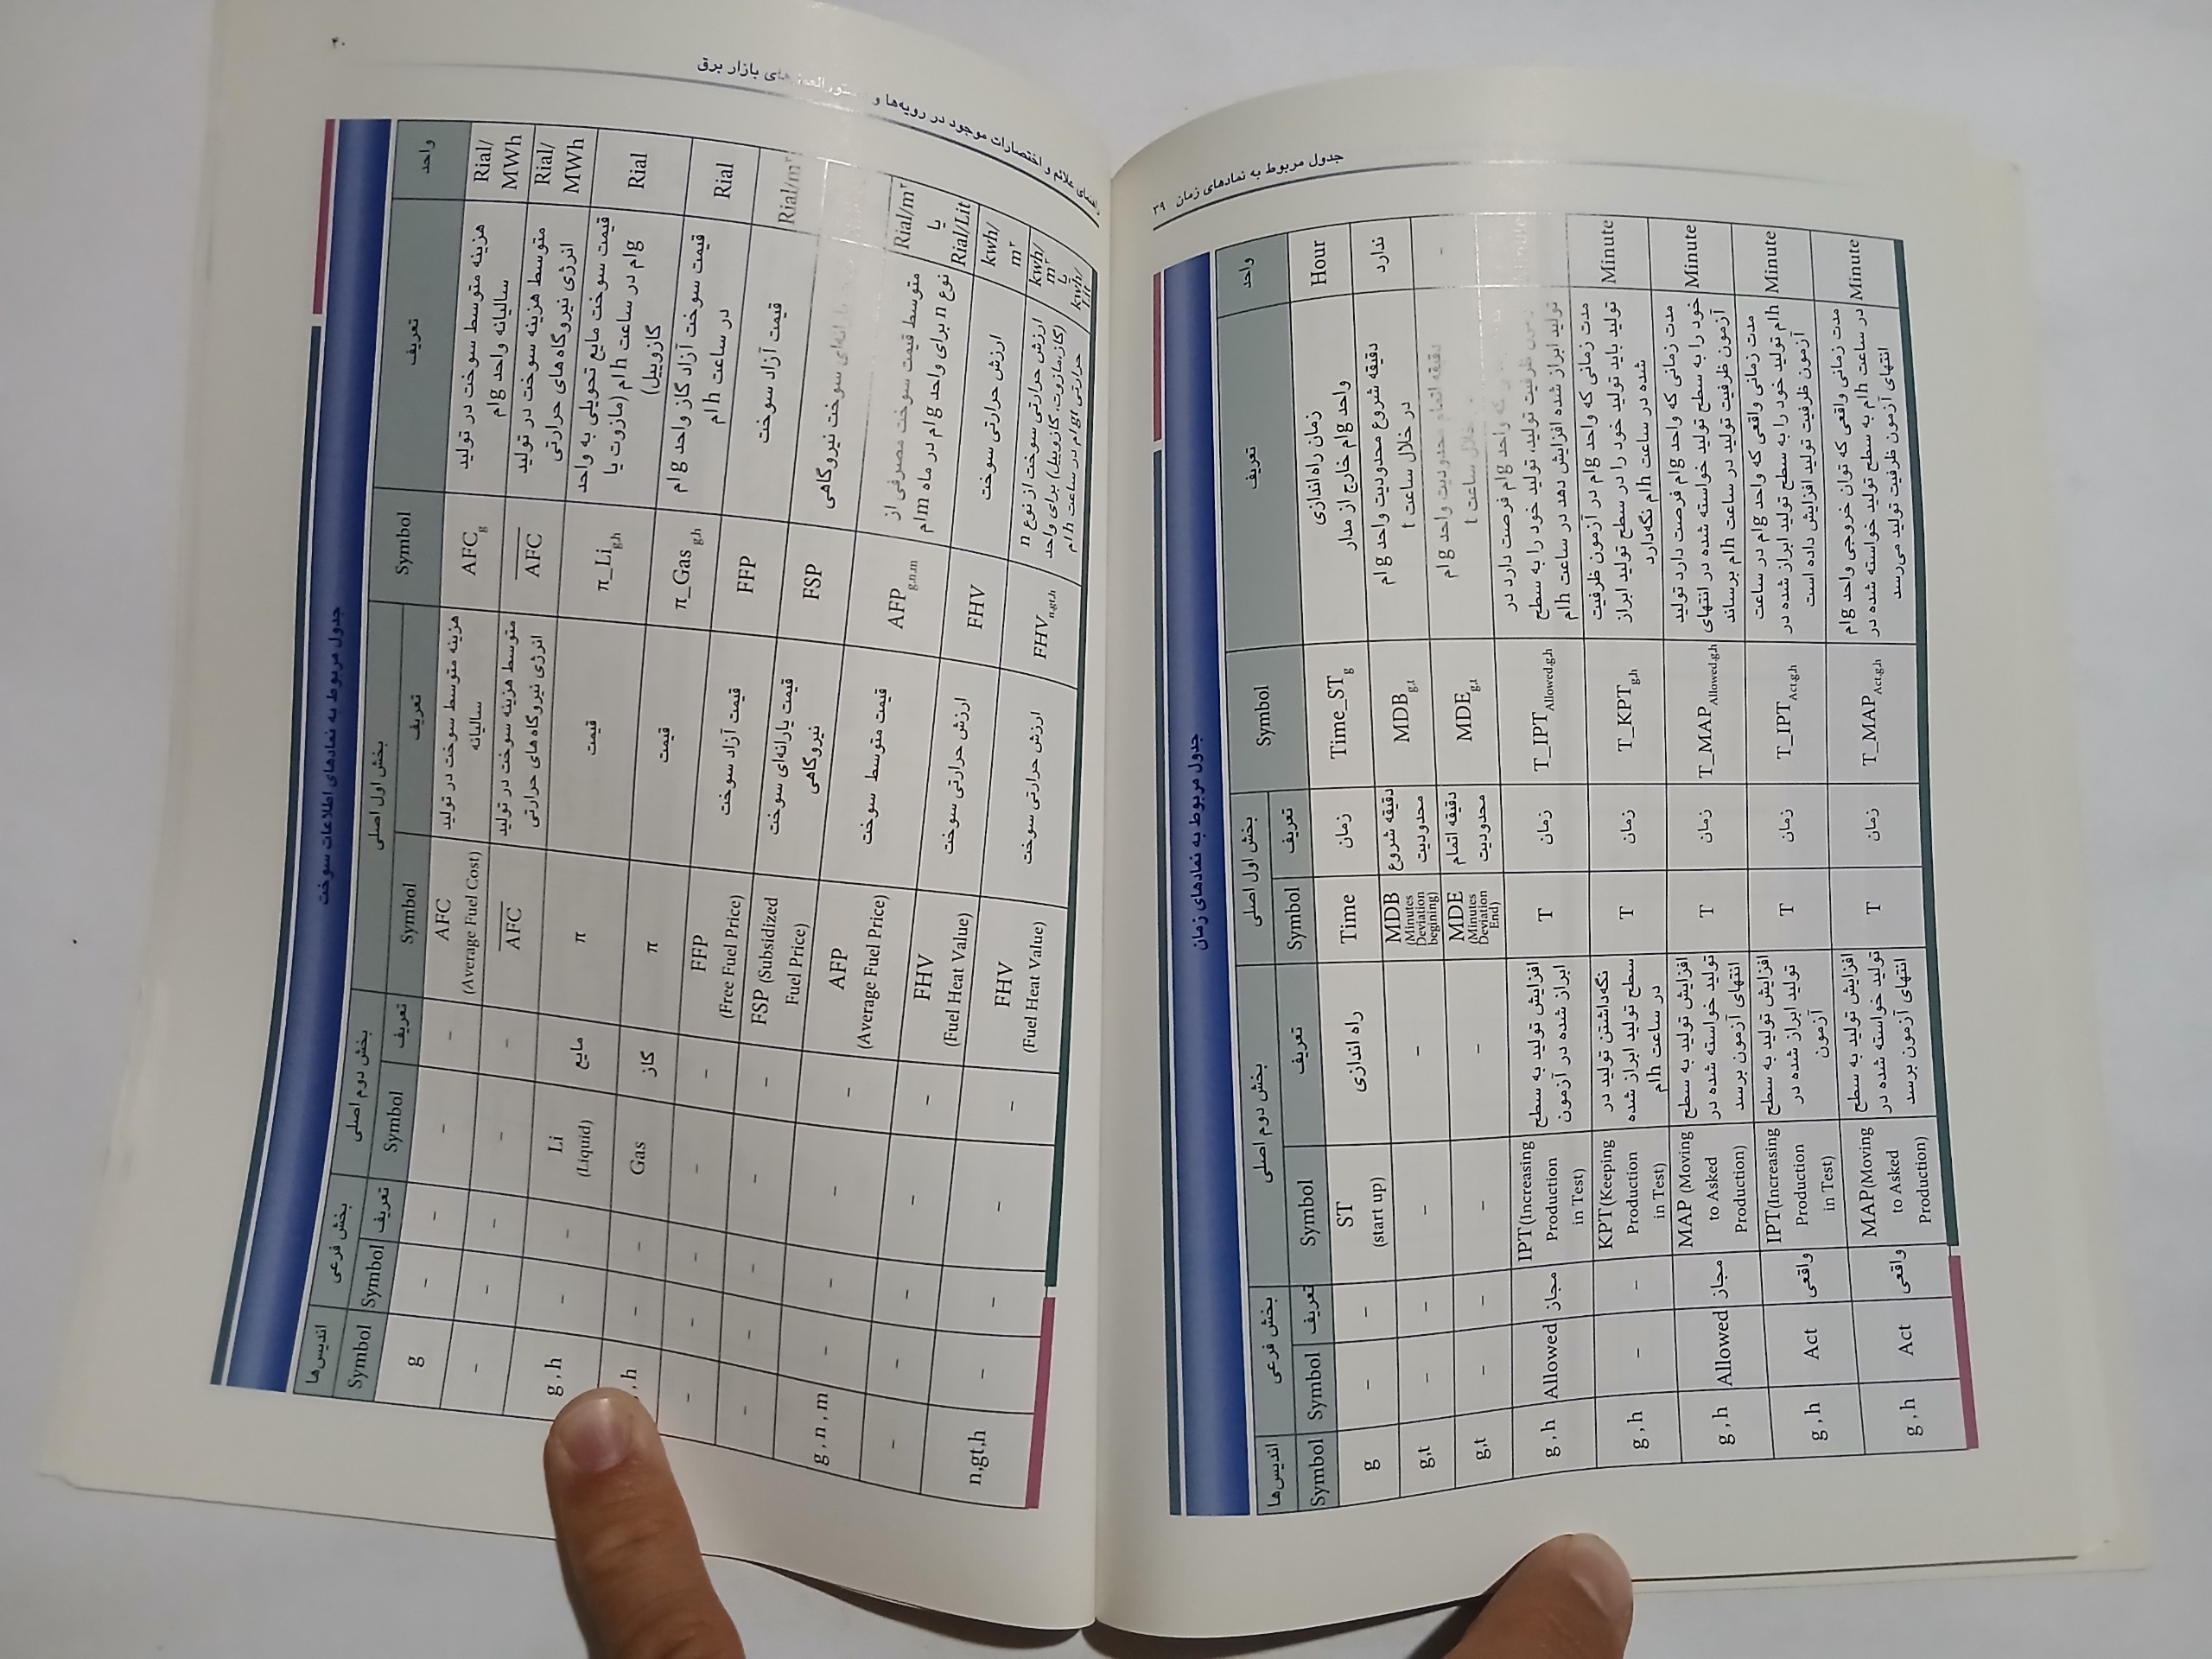 جدول مربوط به نمادهای زمان ۳۹
جدول مربوط به نمادهای زمان
اندیس‌ها بخش فرعی بخش دوم اصلی بخش اول اصلی Symbol تعریف واحد
Symbol Symbol تعریف Symbol تعریف Symbol تعریف
g - - ST (start up) راه اندازی Time زمان Time_STg زمان راه‌اندازی واحد gام خارج از مدار Hour
g,t - - - - MDB (Minutes Deviation begining) دقیقه شروع محدودیت MDBg,t دقیقه شروع محدودیت واحد gام در خلال ساعت t ندارد
g,t - - - - MDE (Minutes Deviation End) دقیقه اتمام محدودیت MDEg,t دقیقه اتمام محدودیت واحد gام خلال ساعت t -
g , h Allowed مجاز IPT(Increasing Production in Test) افزایش تولید به سطح ابراز شده در آزمون T زمان T_IPTAllowed,g,h که واحد gام فرصت دارد در ظرفیت تولید، تولید خود را به سطح تولید ابراز شده افزایش دهد در ساعت hام
g , h - - KPT(Keeping Production in Test) نگه‌داشتن تولید در سطح تولید ابراز شده در ساعت hام T زمان T_KPTg,h مدت زمانی که واحد gام در آزمون ظرفیت تولید باید تولید خود را در سطح تولید ابراز شده در ساعت hام نگه‌دارد Minute
g , h Allowed مجاز MAP (Moving to Asked Production) افزایش تولید به سطح تولید خواسته شده در انتهای آزمون برسد T زمان T_MAPAllowed,g,h مدت زمانی که واحد gام فرصت دارد تولید خود را به سطح تولید خواسته شده در انتهای آزمون ظرفیت تولید در ساعت hام برساند Minute
g , h Act واقعی IPT(Increasing Production in Test) افزایش تولید به سطح تولید ابراز شده در آزمون T زمان T_IPTAct,g,h مدت زمانی واقعی که واحد gام در ساعت hام تولید خود را به سطح تولید ابراز شده در آزمون ظرفیت تولید افزایش داده است Minute
g , h Act واقعی MAP(Moving to Asked Production) افزایش تولید به سطح تولید خواسته شده در انتهای آزمون برسد T زمان T_MAPAct,g,h مدت زمانی واقعی که توان خروجی واحد gام در ساعت hام به سطح تولید خواسته شده در انتهای آزمون ظرفیت تولید می‌رسد Minute
۴۰
راهنمای علائم و اختصارات موجود در رویه‌ها و دستورالعمل‌های بازار برق
جدول مربوط به نمادهای اطلاعات سوخت
اندیس‌ها بخش فرعی بخش دوم اصلی بخش اول اصلی Symbol تعریف واحد
Symbol Symbol تعریف Symbol تعریف Symbol تعریف
g - - - - AFC (Average Fuel Cost) هزینه متوسط سوخت در تولید سالیانه AFCg هزینه متوسط سوخت در تولید سالیانه واحد gام Rial/MWh
- - - - - A̅F̅C̅ متوسط هزینه سوخت در تولید انرژی نیروگاه‌های حرارتی A̅F̅C̅ متوسط هزینه سوخت در تولید انرژی نیروگاه‌های حرارتی Rial/MWh
g , h - - Li (Liquid) مایع π قیمت π_Lig,h قیمت سوخت مایع تحویلی به واحد gام در ساعت hام (مازوت یا گازوییل) Rial
, h - - Gas گاز π قیمت π_Gas g,h قیمت سوخت آزاد گاز واحد gام در ساعت hام Rial
- - - - - FFP (Free Fuel Price) قیمت آزاد سوخت FFP قیمت آزاد سوخت Rial
- - - - - FSP (Subsidized Fuel Price) قیمت یارانه‌ای سوخت نیروگاهی FSP یارانه‌ای سوخت نیروگاهی Rial/m۳
g , n , m - - - - AFP (Average Fuel Price) قیمت متوسط سوخت AFPg,n,m متوسط قیمت سوخت مصرفی از نوع n برای واحد gام در ماه mام Rial/m۳ یا Rial/Lit
- - - - - FHV (Fuel Heat Value) ارزش حرارتی سوخت FHV ارزش حرارتی سوخت kwh/m۳
n,gt,h - - - - FHV (Fuel Heat Value) ارزش حرارتی سوخت FHVn,gt,h ارزش حرارتی سوخت از نوع n (گاز، مازوت، گازوییل) برای واحد حرارتی gtام در ساعت hام kwh/m۳ یا kwh/Lit